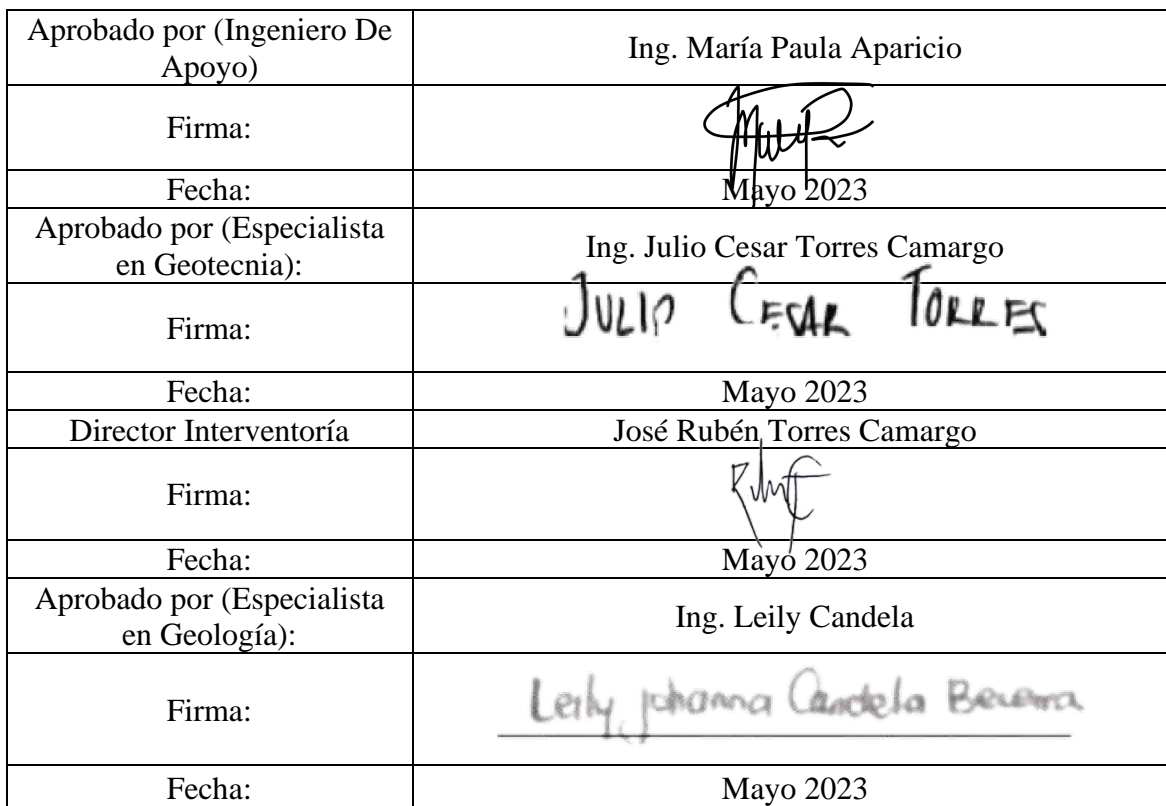 Aprobado por (Ingeniero De
Apoyo)
Ing. María Paula Aparicio
Firma:
Fecha:
Mayo 2023
Aprobado por (Especialista
en Geotecnia):
Ing. Julio Cesar Torres Camargo
Firma:
JULIO CESAR TORRES
Fecha:
Mayo 2023
Director Interventoría
José Rubén Torres Camargo
Firma:
Fecha:
Mayo 2023
Aprobado por (Especialista
en Geología):
Ing. Leily Candela
Firma:
Leily johanna Candela Becerra
Fecha:
Mayo 2023